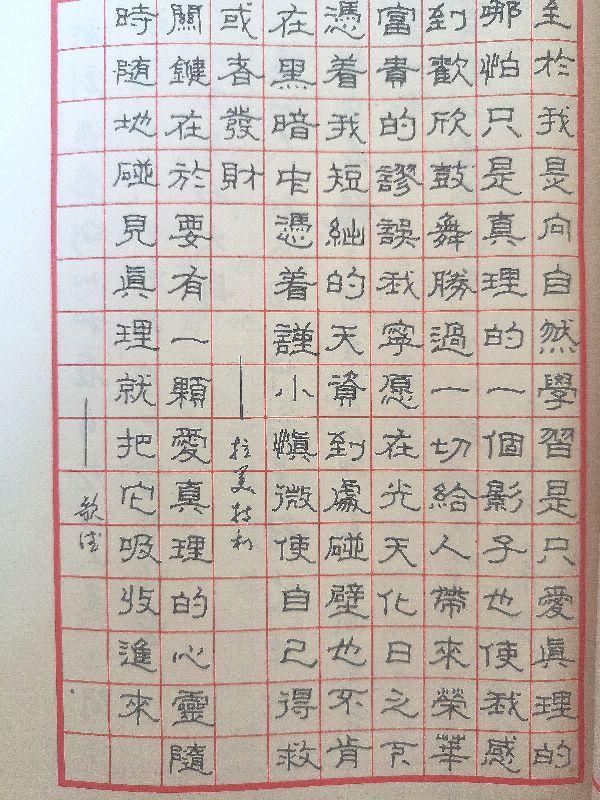 至於我是向自然學習是只愛眞理的
哪怕只是真理的一個影子也使我感
到歡欣鼓舞勝過一切給人帶來榮華
富貴的謬誤我寧愿在光天化日之下
憑着我短絀的天資到處碰壁也不肯
在黑暗中憑着謹小慎微使自己得救
或者發財
——拉美特利
關鍵在於要有一顆愛真理的心靈隨
時隨地碰見眞理就把它吸收進來
——歌德